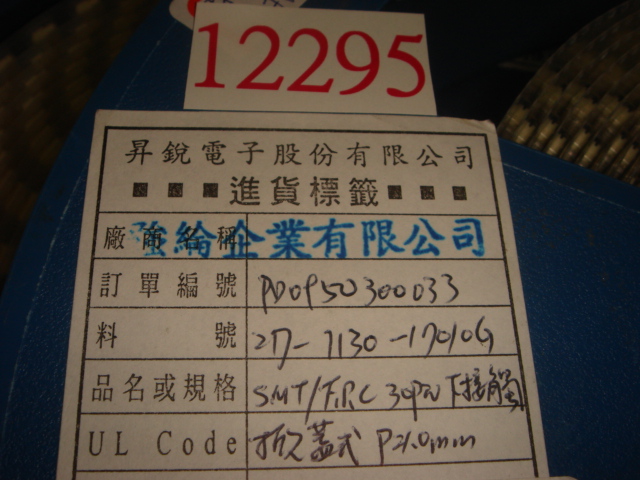 12295
昇銳電子股份有限公司
進貨標籤
廠商名稱 強綸企業有限公司
訂單編號 PD0950300033
料號 27-7130-17010G
品名或規格 SMT/F.P.C 30PIN 下接觸
UL Code 掀蓋式 P=1.0mm